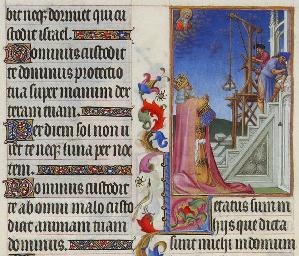 bit neq dormiet qui cu
stodit israel.
Dominus custodit
te dominus protectio
tua super manum dex
teram tuam.
Per diem sol non u
ret te neq luna per noc
tem.
Dominus custodit
te ab omni malo custo
diat animam tuam
dominus.
Letatus sum in
hijs que dicta
sunt michi in domum